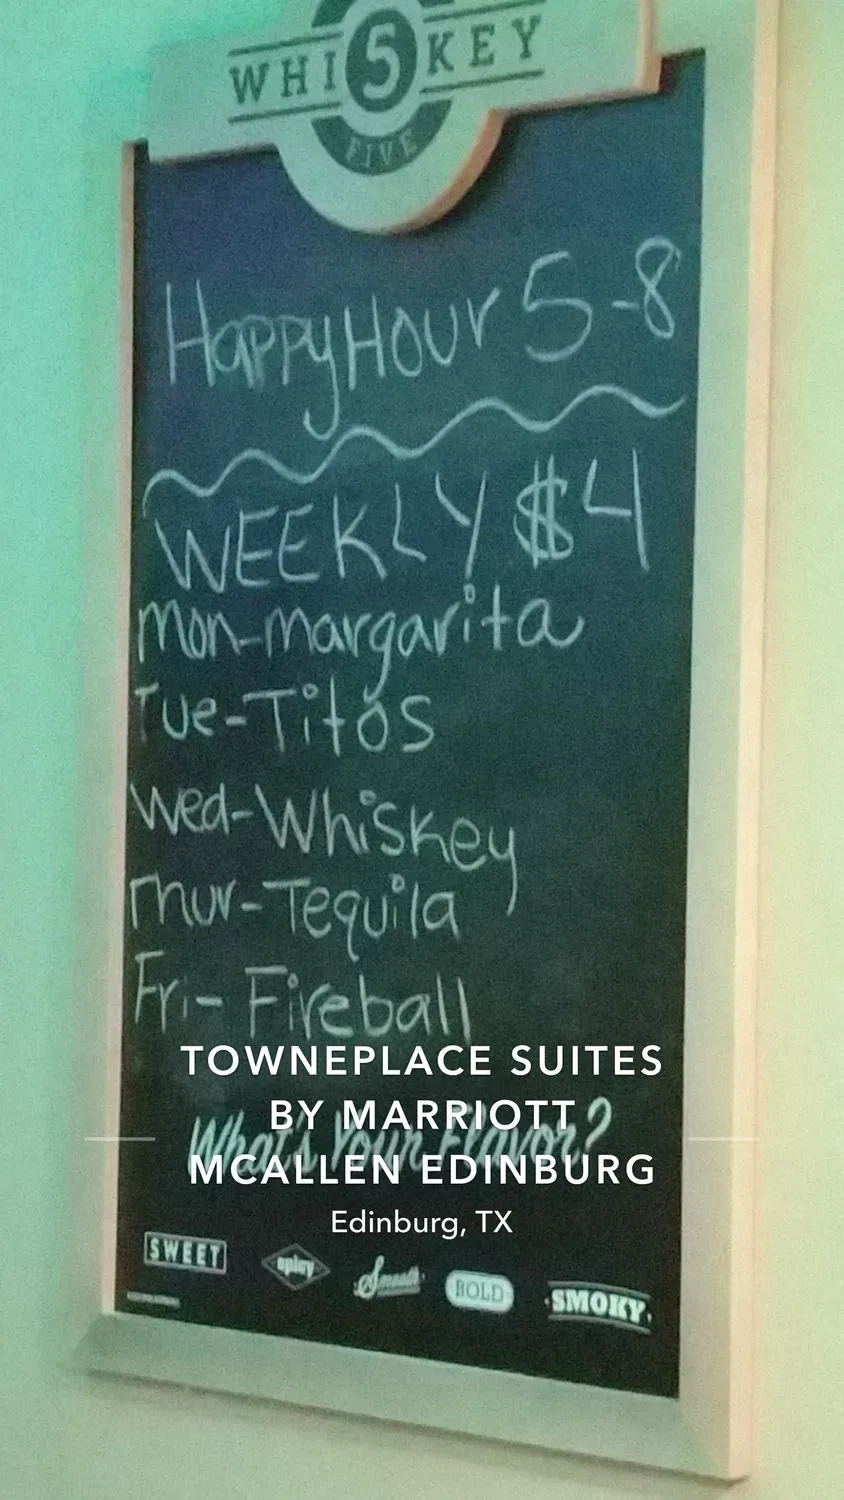 WHI5KEY
FIVE
HappyHour 5-8
WEEKLY $4
Mon-margarita
Tue-Titos
Wed-Whiskey
Thur-Tequila
Fri-Fireball
TOWNEPLACE SUITES
BY MARRIOTT
What's Your Flavor?
MCALLEN EDINBURG
Edinburg, TX
SWEET
spicy
Smooth
BOLD
SMOKY